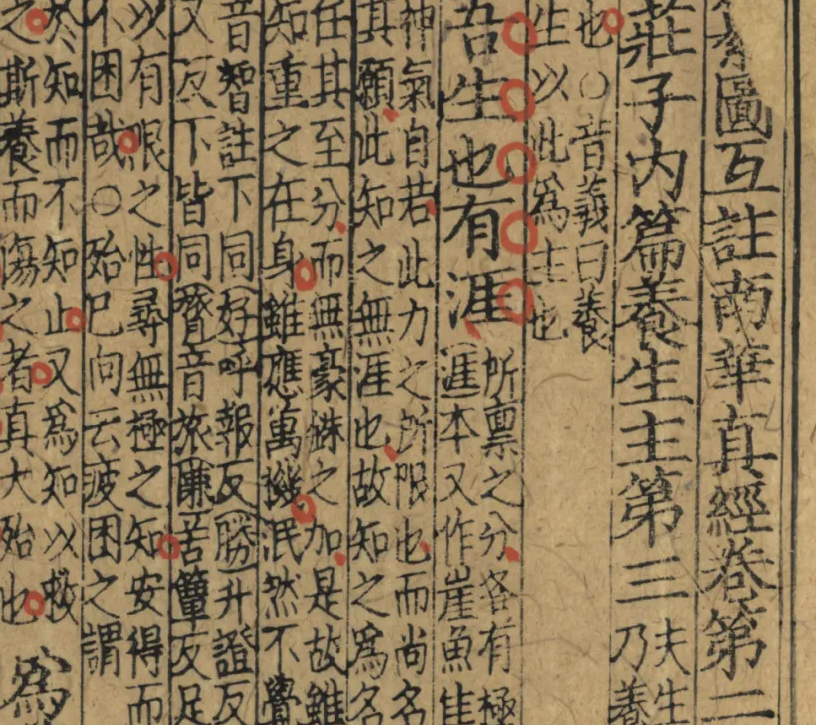 圖互註南華真經卷第二
莊子內篇養生主第三
夫生
乃養
也○音義曰養
生以此爲主也
吾生也有涯
所稟之分各有極
涯本又作崖魚佳
神氣自若此力之所限也而尚名
其願此知之無涯也故知之爲名
任其至分而無毫銖之加是故雖
知重之在身雖應萬機泯然不覺
音智註下同好呼報反勝升證反
又反下皆同膂音旅嗛苦簟反足
以有限之性尋無極之知安得而
不困哉○殆已向云疲困之謂
於知而不知止又爲知以救
之斯養而傷之者真大殆也
爲